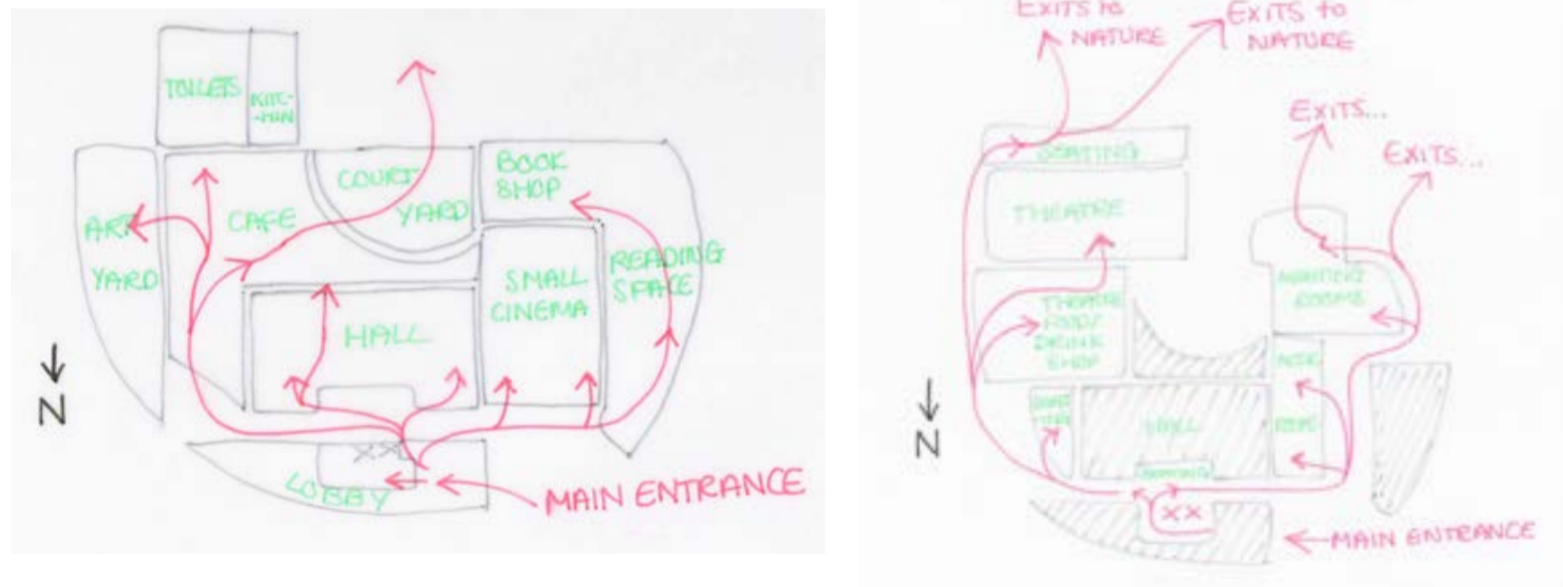 TOILETS
KITC-
-HIN
COURT
YARD
BOOK
SHOP
CAFE
ART
YARD
READING
SPACE
SMALL
CINEMA
HALL
N
XX
LOBBY
MAIN ENTRANCE
EXITS to
NATURE
EXITS to
NATURE
EXITS...
EXITS...
SEATING
THEATRE
THEATRE
FOOD/
DRINK
SHOP
MEETING
ROOMS
HALL
N
XX
MAIN ENTRANCE